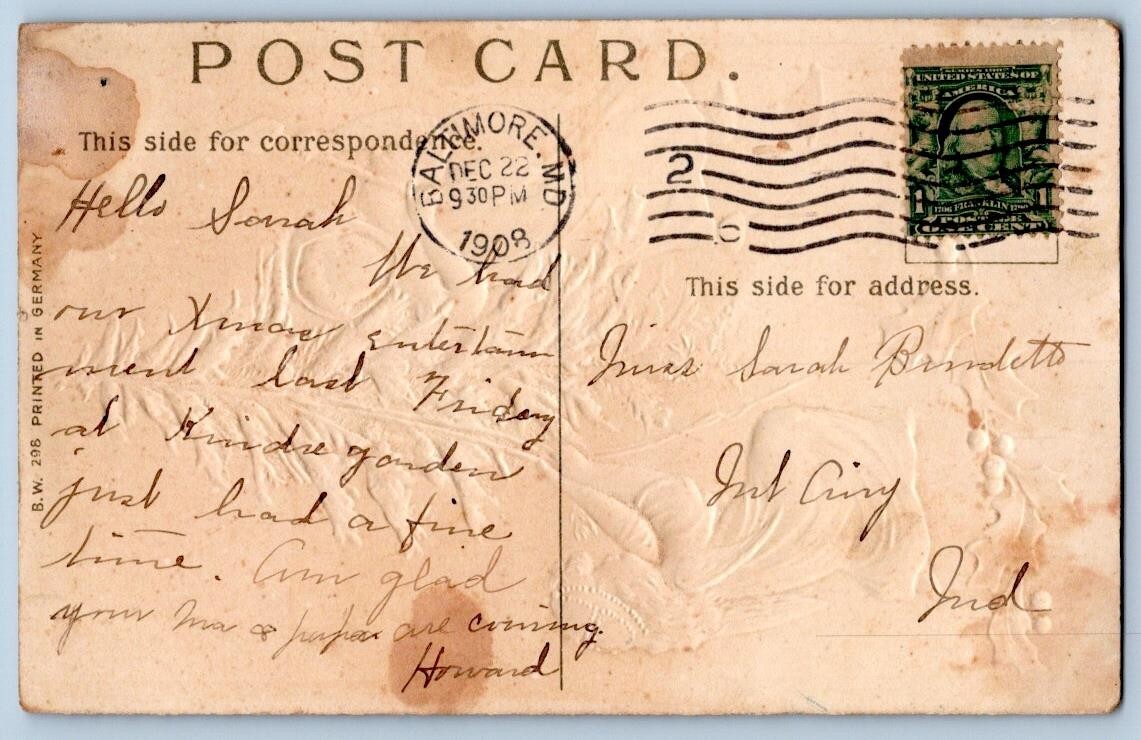 POST CARD.
This side for correspondence.
BALTIMORE. MD
DEC 22
930 PM
1908
2
6
SERIES 1902
UNITED STATES OF
AMERICA
1706 FRANKLIN 1790
ONE CENT
This side for address.
Hello Sarah
We had
our Xmas entertain
ment last Friday
at Kindregarden
just had a fine
time. Am glad
your Ma & papa are coming.
Howard
Miss Sarah
Ind
B.W. 298 PRINTED IN GERMANY